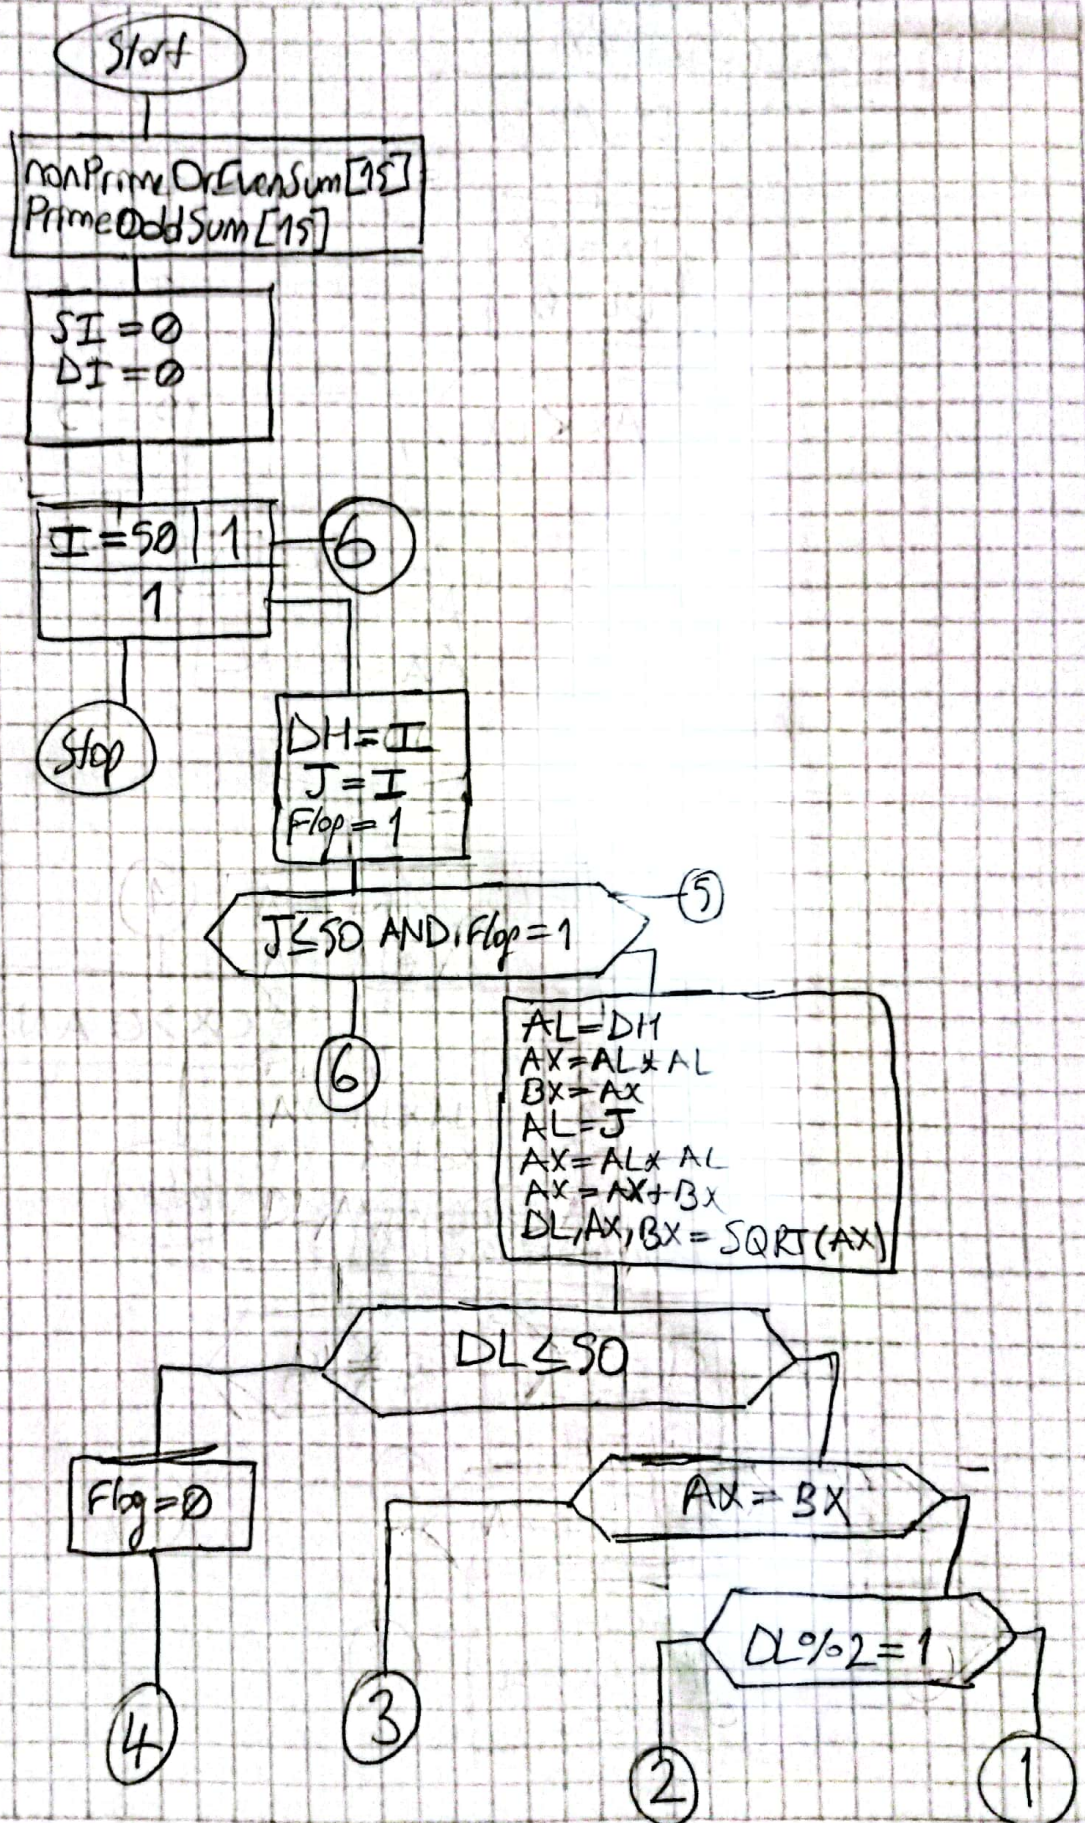 Start
nonPrimeOrEvenSum[15]
PrimeOddSum[15]
SI = 0
DI = 0
I = 50 | 1
6
1
Stop
DH = I
J = I
Flag = 1
5
J ≤ 50 AND Flag = 1
6
AL = DH
AX = AL * AL
BX = AX
AL = J
AX = AL * AL
AX = AX + BX
DL, AX, BX = SQRT(AX)
DL ≤ 50
Flag = 0
AX = BX
DL % 2 = 1
4
3
2
1